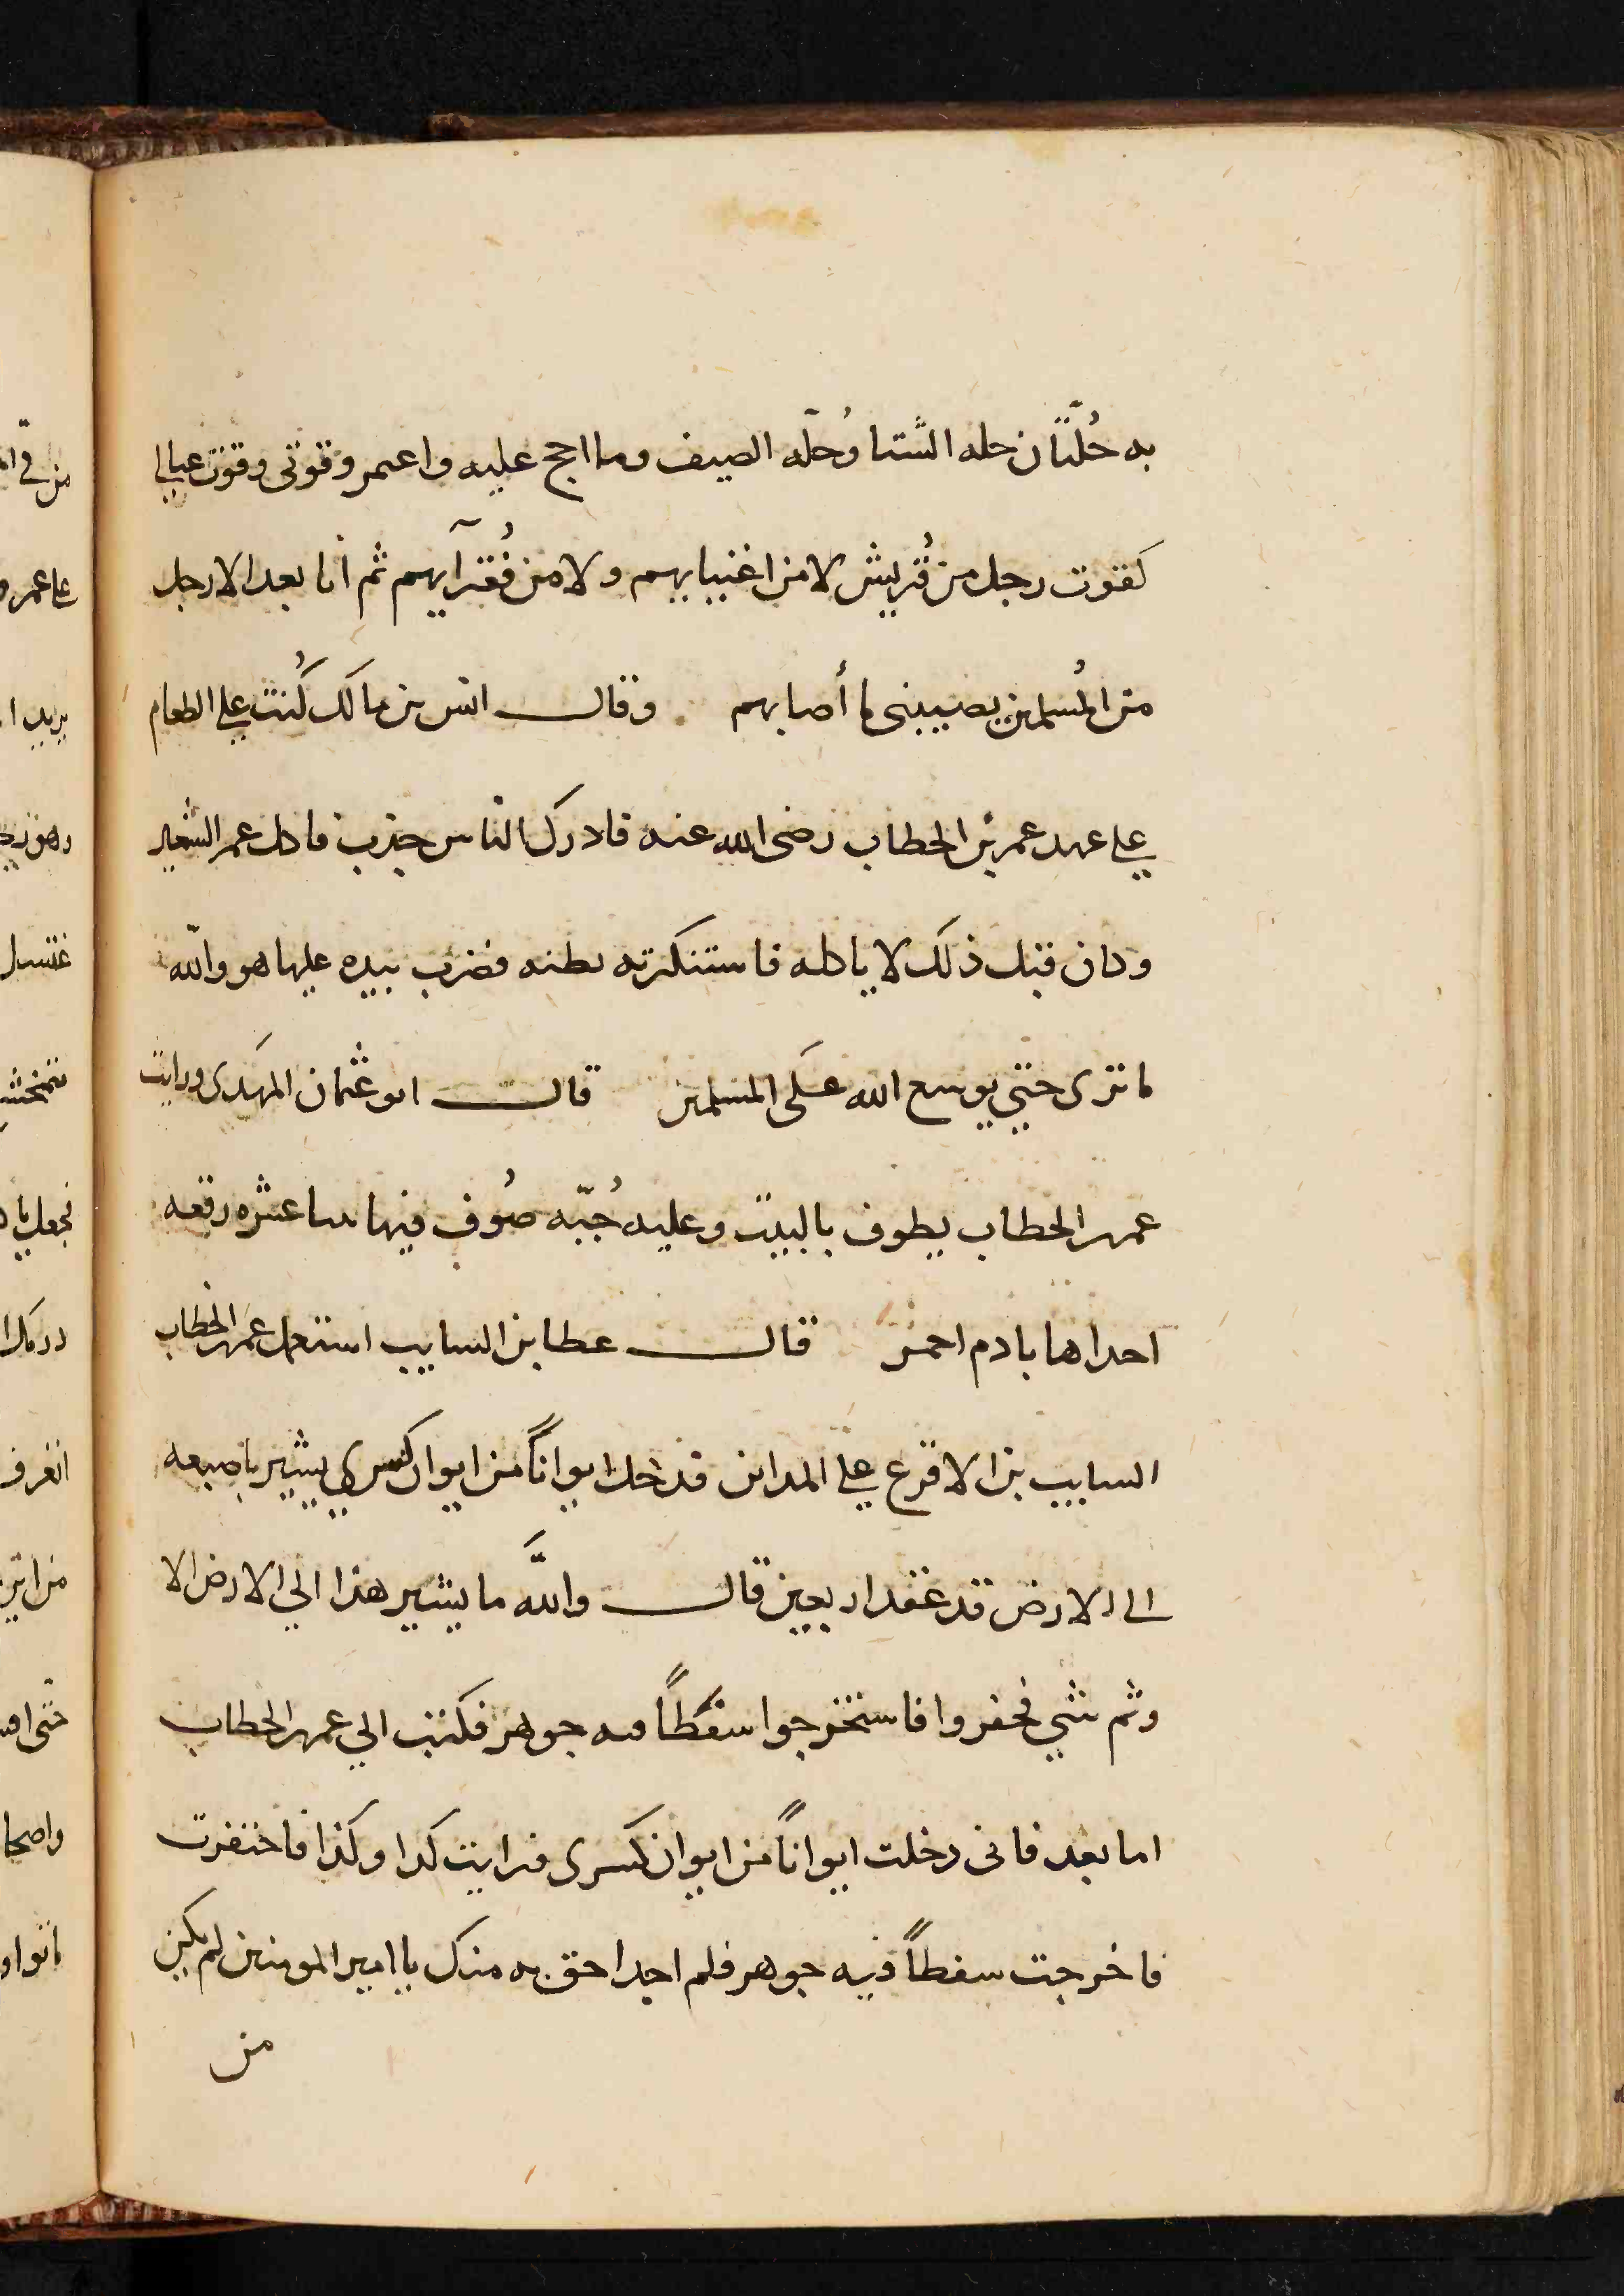 به حُلّتان حله الشتا وُحلّه الصيف وما احج عليه واعمر وقوتى وقوت عيالى
كقوت رجل من قُريش لا من اغنيايهم ولا من فُقرآيهم ثم انا بعد الا رجل
من المُسلمين يصيبنى ما أصابهم وقال انس بن مالك كُنت علي الطعام
علي عهد عمر بن الخطاب رضى الله عنه فادرك الناس جذب فاكل عمر الشعير
وكان قبل ذلك لا ياكله فاستنكرته بطنه فضرب بيده عليها هو والله
ما ترى حتي يوسع الله عَلى المسلمين قال ابو عثمان المهَدى ورايت
عمر بن الخطاب يطوف بالبيت وعليه جُبّه صُوف فيها اثنا عشره رقعه
احداها بادم احمر قال عطا بن السايب استعمل عمر بن الخطاب
السايب بن الاقرع علي المداين فدخل ايواناً من ايوان كسري يشير باصبعه
الى الارض قد عقد اربعين قال واللَّه ما يشير هذا الي الارض الا
وثم شي فحفروا فاستخرجوا سفَطاً فيه جوهر فكتب الي عمر بن الخطاب
اما بعد فانى دخلت ايواناً من ايوان كسرى فرايت كذا وكذا فاحتفرت
فاخرجت سفطاً فيه جوهر فلم اجد احق به منك يا امير المومنين لم يكن
من